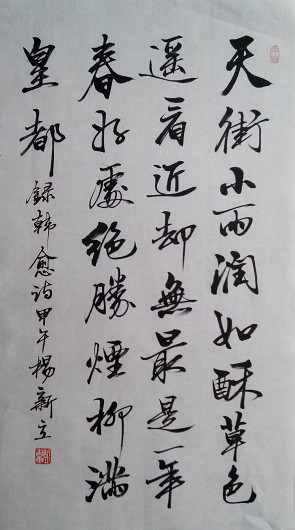 天街小雨润如酥草色
遥看近却無最是一年
春好處絕勝煙柳满
皇都 録韩愈诗甲午楊新立